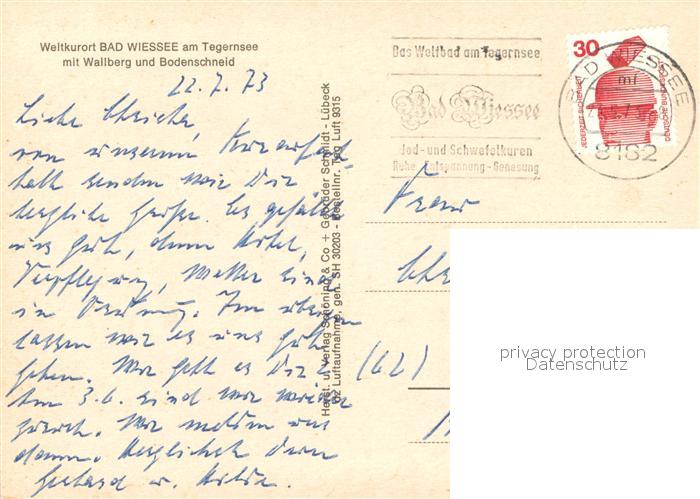 Weltkurort BAD WIESSEE am Tegernsee
mit Wallberg und Bodenschneid
22.7.73
Liebe
von unserem Kuraufent-
halt senden wir Dir
herzliche Grüße. Es gefällt
uns gut, denn Hotel,
Verpflegung, Wetter sind
in Ordnung. Im übrigen
lassen wir es uns gut
gehen. Wie geht es Dir?
Am 3.6. sind wir wieder
zurück. Wir melden uns
dann. Herzlichst Deine
Gerhard u.
Herst. u. Verlag Schöning & Co + Gebrüder Schmidt - Lübeck
BZ Luftaufnahme, gen. SH 30203 - Bestellnr. Teg Luft 9315
Das Weltbad am Tegernsee
Bad Wiessee
Jod- und Schwefelkuren
Ruhe - Entspannung - Genesung
30
JEDERZEIT SICHERHEIT
DEUTSCHE BUNDESPOST
BAD WIESSEE
mf
8182
Frau
(62)
privacy protection
Datenschutz